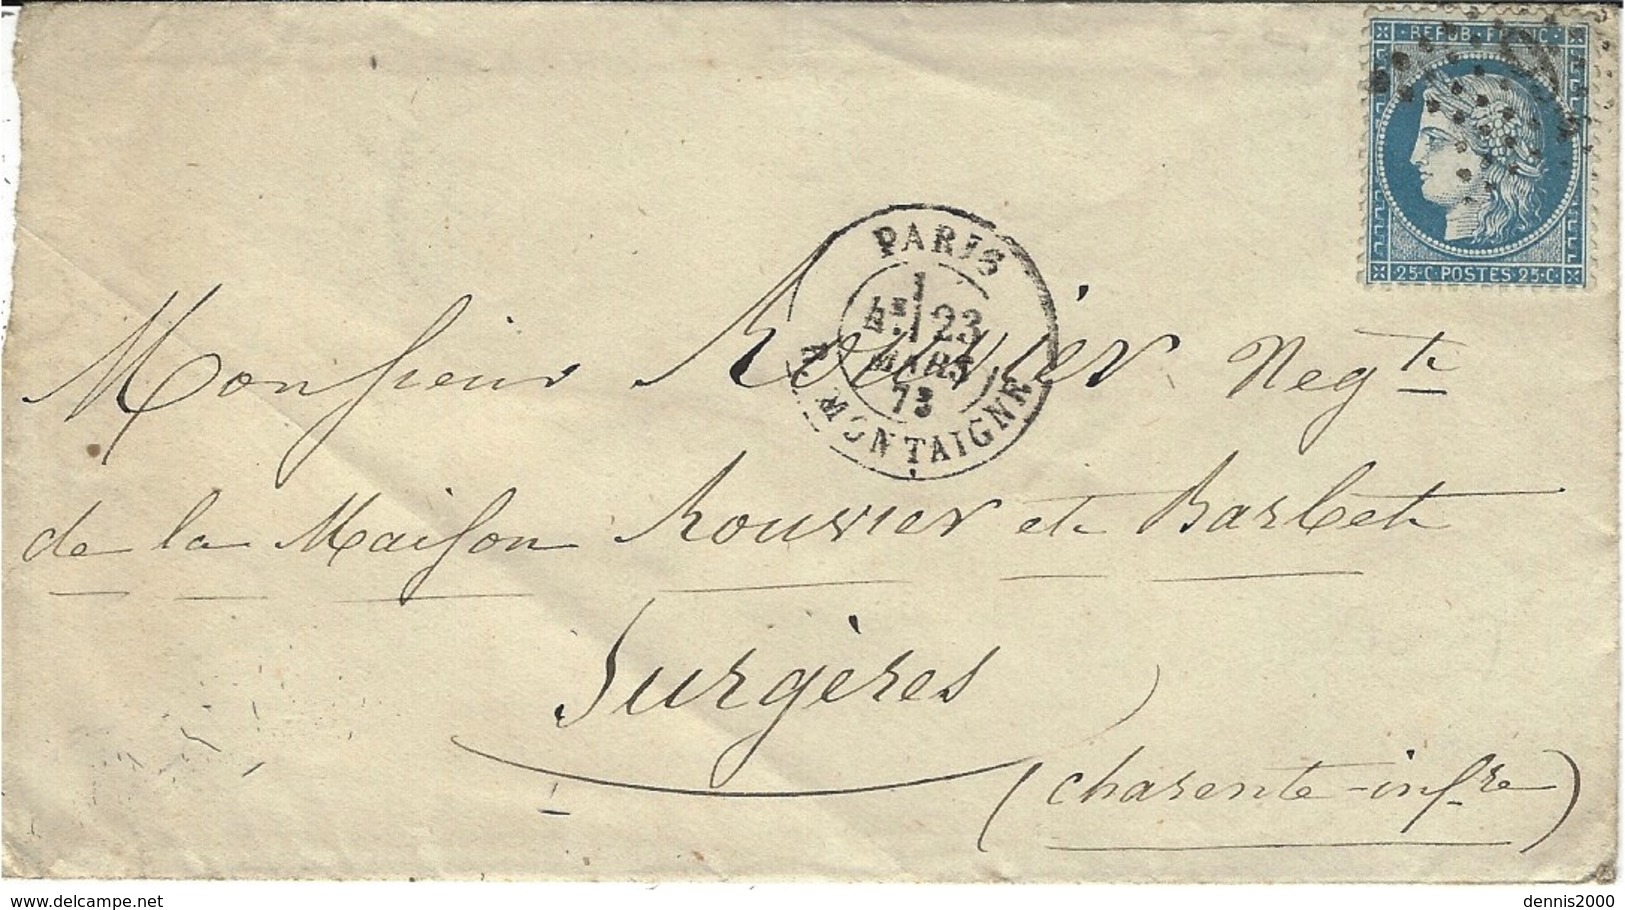 REPUB. FRANC.
25·C POSTES 25·C
PARIS
1
23
MARS
73
R. MONTAIGNE
Monsieur Rouvier Negt
de la Maison Rouvier et Barbet
Surgères
(Charente-infre)
www.delcampe.net
dennis2000